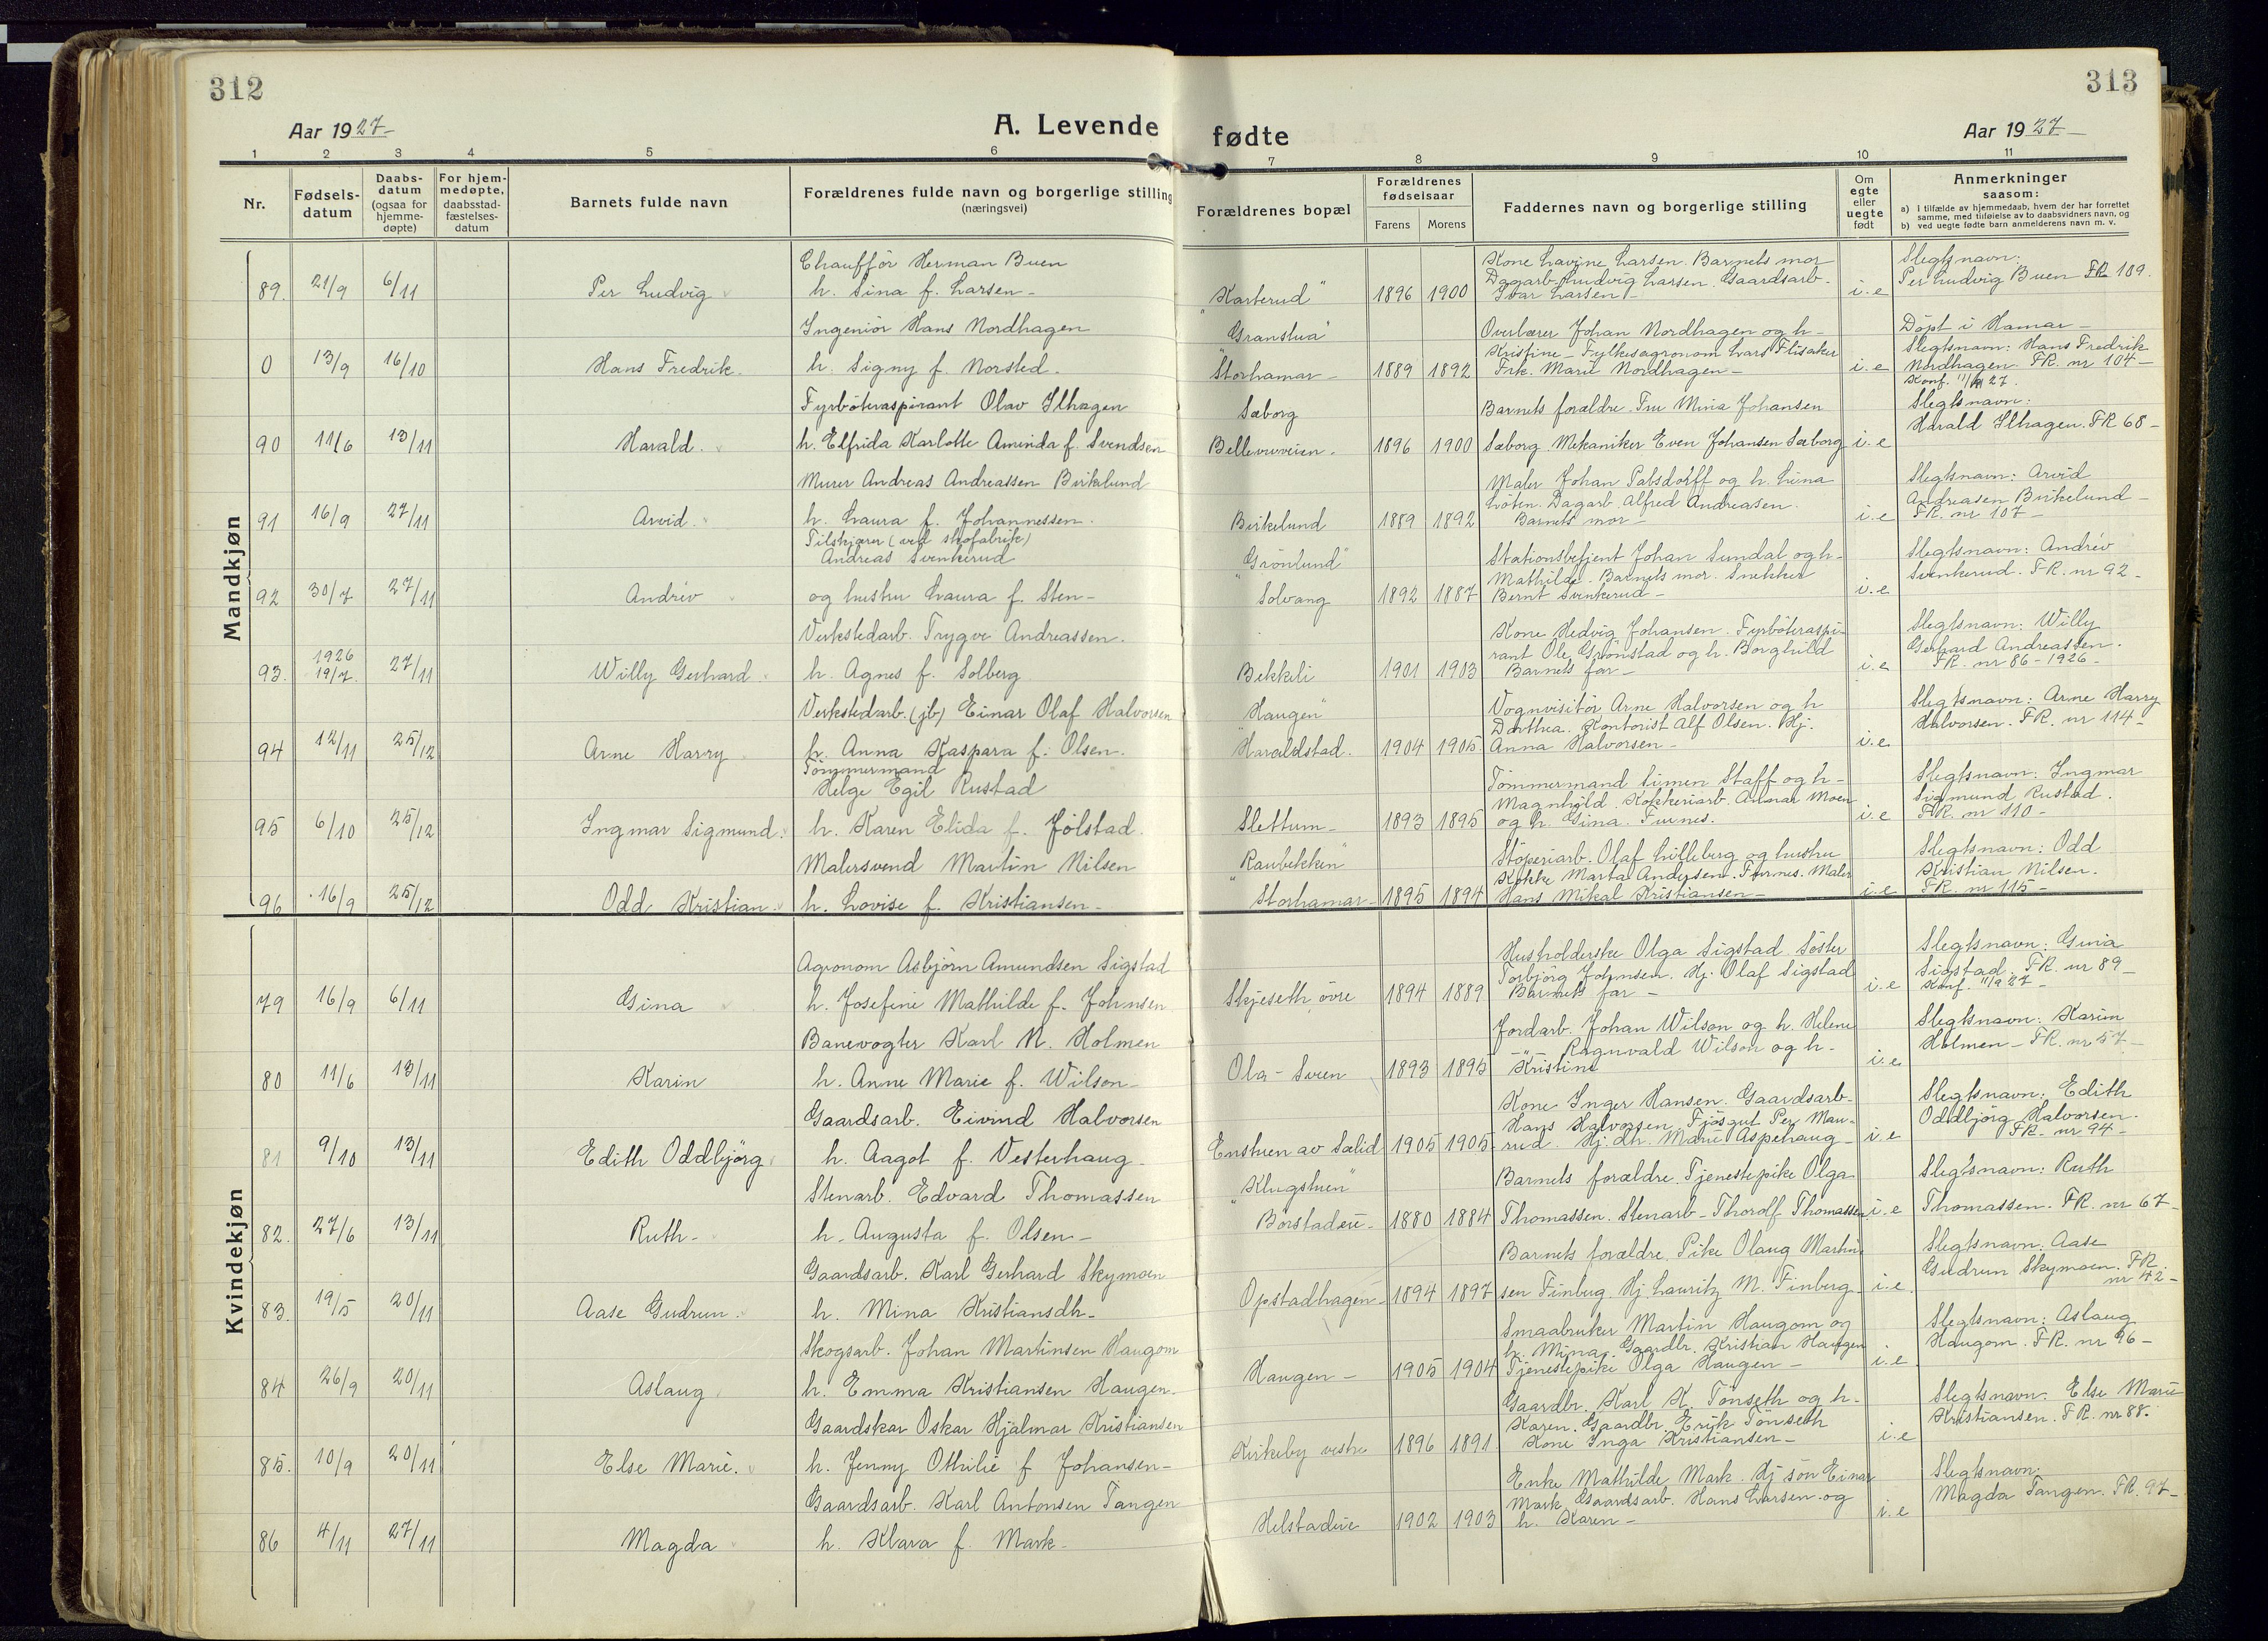 312
Aar 1927
A. Levende
1 2 3 4 5 6
Nr.
Fødsels-
datum
Daabs-
datum
(ogsaa for
hjemme-
døpte)
For hjem-
medøpte,
daabsstad-
fæstelses-
datum
Barnets fulde navn
Forældrenes fulde navn og borgerlige stilling
(næringsvei)
Mandkjøn
Chauffør Herman Buen
89. 21/9 6/11 Per Ludvig h. Lina f. Larsen
Ingeniør Hans Nordhagen
0 13/9 16/10 Hans Fredrik. h. Signy f. Norsted.
Fyrbøteraspirant Olav Ilhagen
90 11/6 13/11 Harald. h. Elfrida Karlotte Aminda f. Svendsen
Murer Andreas Andreassen Birkelund
91 16/9 27/11 Arvid. h. Laura f. Johannessen.
Tilskjærer (ved skofabrik)
Andreas Svenkerud
92 30/7 27/11 Andrév og hustru Laura f. Sten-
Verkstedarb. Trygve Andreassen.
1926
93. 19/7. 27/11 Willy Gerhard h. Agnes f. Solberg
Verkstedarb. (jb) Einar Olaf Halvorsen
94 12/11 25/12 Arne Harry h. Anna Kaspara f. Olsen.
Tømmermand
Helge Egil Rustad
95 6/10 25/12 Ingmar Sigmund. h. Karen Elida f. Jølstad.
Malersvend Martin Nilsen
96 16/9 25/12 Odd Kristian h. Lovise f. Kristiansen-
Kvindekjøn
Agronom Asbjørn Amundsen Sigstad
79 16/9 6/11 Gina h. Josefine Mathilde f. Johnsen
Banevogter Karl N. Holmen
80 11/6 13/11 Karin h. Anne Marie f. Wilson-
Gaardsarb. Eivind Halvorsen
81 9/10 13/11 Edith Oddbjörg h. Aagot f. Vesterhaug
Stenarb. Edvard Thomassen
82. 27/6 13/11 Ruth- h. Augusta f. Olsen-
Gaardsarb. Karl Gerhard Skymoen
83. 19/5 20/11 Aase Gudrun. h. Mina Kristiansdh-
Skogsarb. Johan Martinsen Haugom
84 26/9 20/11 Aslaug h. Emma Kristiansen Haugen.
Gaardskar Oskar Hjalmar Kristiansen
85. 10/9 20/11 Else Marie. h. Jenny Othilie f Johansen-
Gaardsarb. Karl Antonsen Tangen
86 4/11 27/11 Magda h. Klara f. Mark-
313
fødte
Aar 1927
7 8 9 10 11
Forældrenes bopæl
Forældrenes
fødselsaar
Farens Morens
Faddernes navn og borgerlige stilling
Om
egte
eller
uegte
født
Anmerkninger
saasom:
a) i tilfælde av hjemmedaab, hvem der har forrettet
samme, med tilføielse av to daabsvidners navn, og
b) ved uegte fødte barn anmelderens navn m. v.
Kone Lavine Larsen. Barnets mor Slegtsnavn:
Dagarb. Ludvig Larsen. Gaardsarb- Per Ludvig Buen FR 109.
"Karterud" 1896 1900 Ivar Larsen- i.e
"Granstua" Overlærer Johan Nordhagen og h- Døpt i Hamar-
Kristine- Fylkesagronom Lars Flisaker Slegtsnavn: Hans Fredrik
Storhamar- 1889 1892 Frk. Marie Nordhagen- i.e Nordhagen. FR. nr 104-
Konf. 11/11 27.
Sæborg Barnets forældre. Fru Mina Johansen Slegtsnavn:
Harald Ilhagen. FR 68-
Bellevueveien. 1896 1900 Sæborg. Mekaniker Even Johansen Sæborg i.e
Maler Johan Pabsdorff og h. Lina Slegtsnavn: Arvid
Løten. Dagarb. Alfred Andreasen. Andreasen Birkelund-
Birkelund 1889 1892 Barnets mor- i.e FR. nr 107-
"Grønlund" Stationsbetjent Johan Sundal og h- Slegtsnavn: Andrév
Mathilde. Barnets mor. Snekker Svenkerud. FR. nr 92-
Solvang 1892 1887 Bernt Svenkerud- i.e
Kone Hedvig Johansen. Fyrbøteraspi- Slegtsnavn: Willy
rant Ole Grønstad og h. Borghild Gerhard Andreassen.
Bekkeli 1901 1903 Barnets far- i.e FR. nr 86-1926-
"Haugen" Vognvisitør Arne Halvorsen og h Slegtsnavn: Arne Harry
Dorthea. Kontorist Alf Olsen. Hj. Halvorsen. FR. nr 114-
Haraldstad. 1904 1905 Anna Halvorsen- i.e.
Tømmermand Simen Staff og h- Slegtsnavn: Ingmar
Magnhild. Kokkeriarb. Annar Moen Sigmund Rustad.
Slettum- 1893 1895 og h. Gina. Furnes. i.e FR. nr 110-
"Raubekken" Støperiarb. Olaf Lilleberg og hustru Slegtsnavn: Odd
Kokke Marta Andersen. Furnes. Maler Kristian Nilsen.
Storhamar- 1895 1894 Hans Mikal Kristiansen- i.e FR. nr 115-
Husholderske Olga Sigstad. Søster Slegtsnavn: Gina
Torbjørg Johnsen. Hj. Olaf Sigstad Sigstad. FR. nr 89-
Skjeseth øvre 1894 1889 Barnets far- i.e Konf. 11/9 27-
Jordarb. Johan Wilson og h. Helene Slegtsnavn: Karin
-"- Ragnvald Wilson og h- Holmen- FR. nr 57-
Ola-Sveen 1893 1895 Kristine i.e
Kone Inger Hansen. Gaardsarb- Slegtsnavn: Edith
Hans Halvorsen. Fjøsgut Per Mau- Oddbjörg Halvorsen.
Enstuen av Sælid 1905 1905 rud. Hj. dh. Marie Aspehaug- i.e FR. nr 94-
"Klugstuen" Barnets forældre. Tjenestepike Olga Slegtsnavn: Ruth
Børstadeie- 1880 1884 Thomassen. Stenarb- Thorolf Thomassen i.e Thomassen. FR. nr 67-
Barnets forældre. Pike Olaug Martin- Slegtsnavn: Aase
Gudrun Skymoen. FR.
Opstadhagen- 1894 1897 sen Finberg. Hj. Lauritz M. Finberg- i.e. nr 42-
Smaabruker Martin Haugom og Slegtsnavn: Aslaug
h. Mina. Gaardbr. Kristian Haugen Haugom. FR. nr 96-
Haugen- 1905 1904 Tjenestepike Olga Haugen- i.e
Gaardbr. Karl K. Tønseth og h- Slegtsnavn: Else Marie
Karen. Gaardbr. Erik Tønseth Kristiansen. FR. nr 88.
Kirkeby vestre 1896 1891 Kone Inga Kristiansen- i.e
Enke Mathilde Mark. Hj søn Einar Slegtsnavn:
Mark. Gaardsarb. Hans Larsen og Magda Tangen. FR. 97-
Helstadeie 1902 1903 h. Karen- i.e